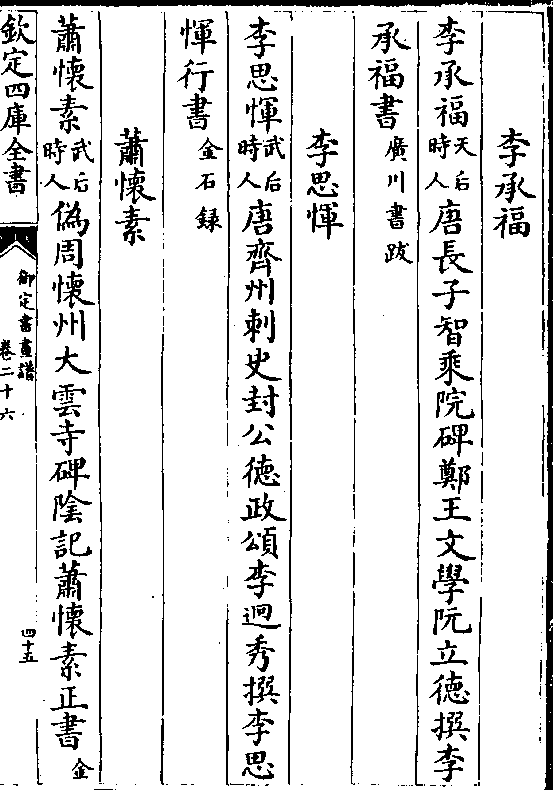 李承福
李承福天后時人唐長子智乘院碑鄭王文學阮立德撰李
承福書廣川書跋
李思惲
李思惲武后時人唐齊州刺史封公德政頌李迥秀撰李思
惲行書金石録
蕭懷素
蕭懷素武后時人偽周懷州大雲寺碑陰記蕭懷素正書金
欽定四庫全書
御定書畫譜
卷二十六
四十五